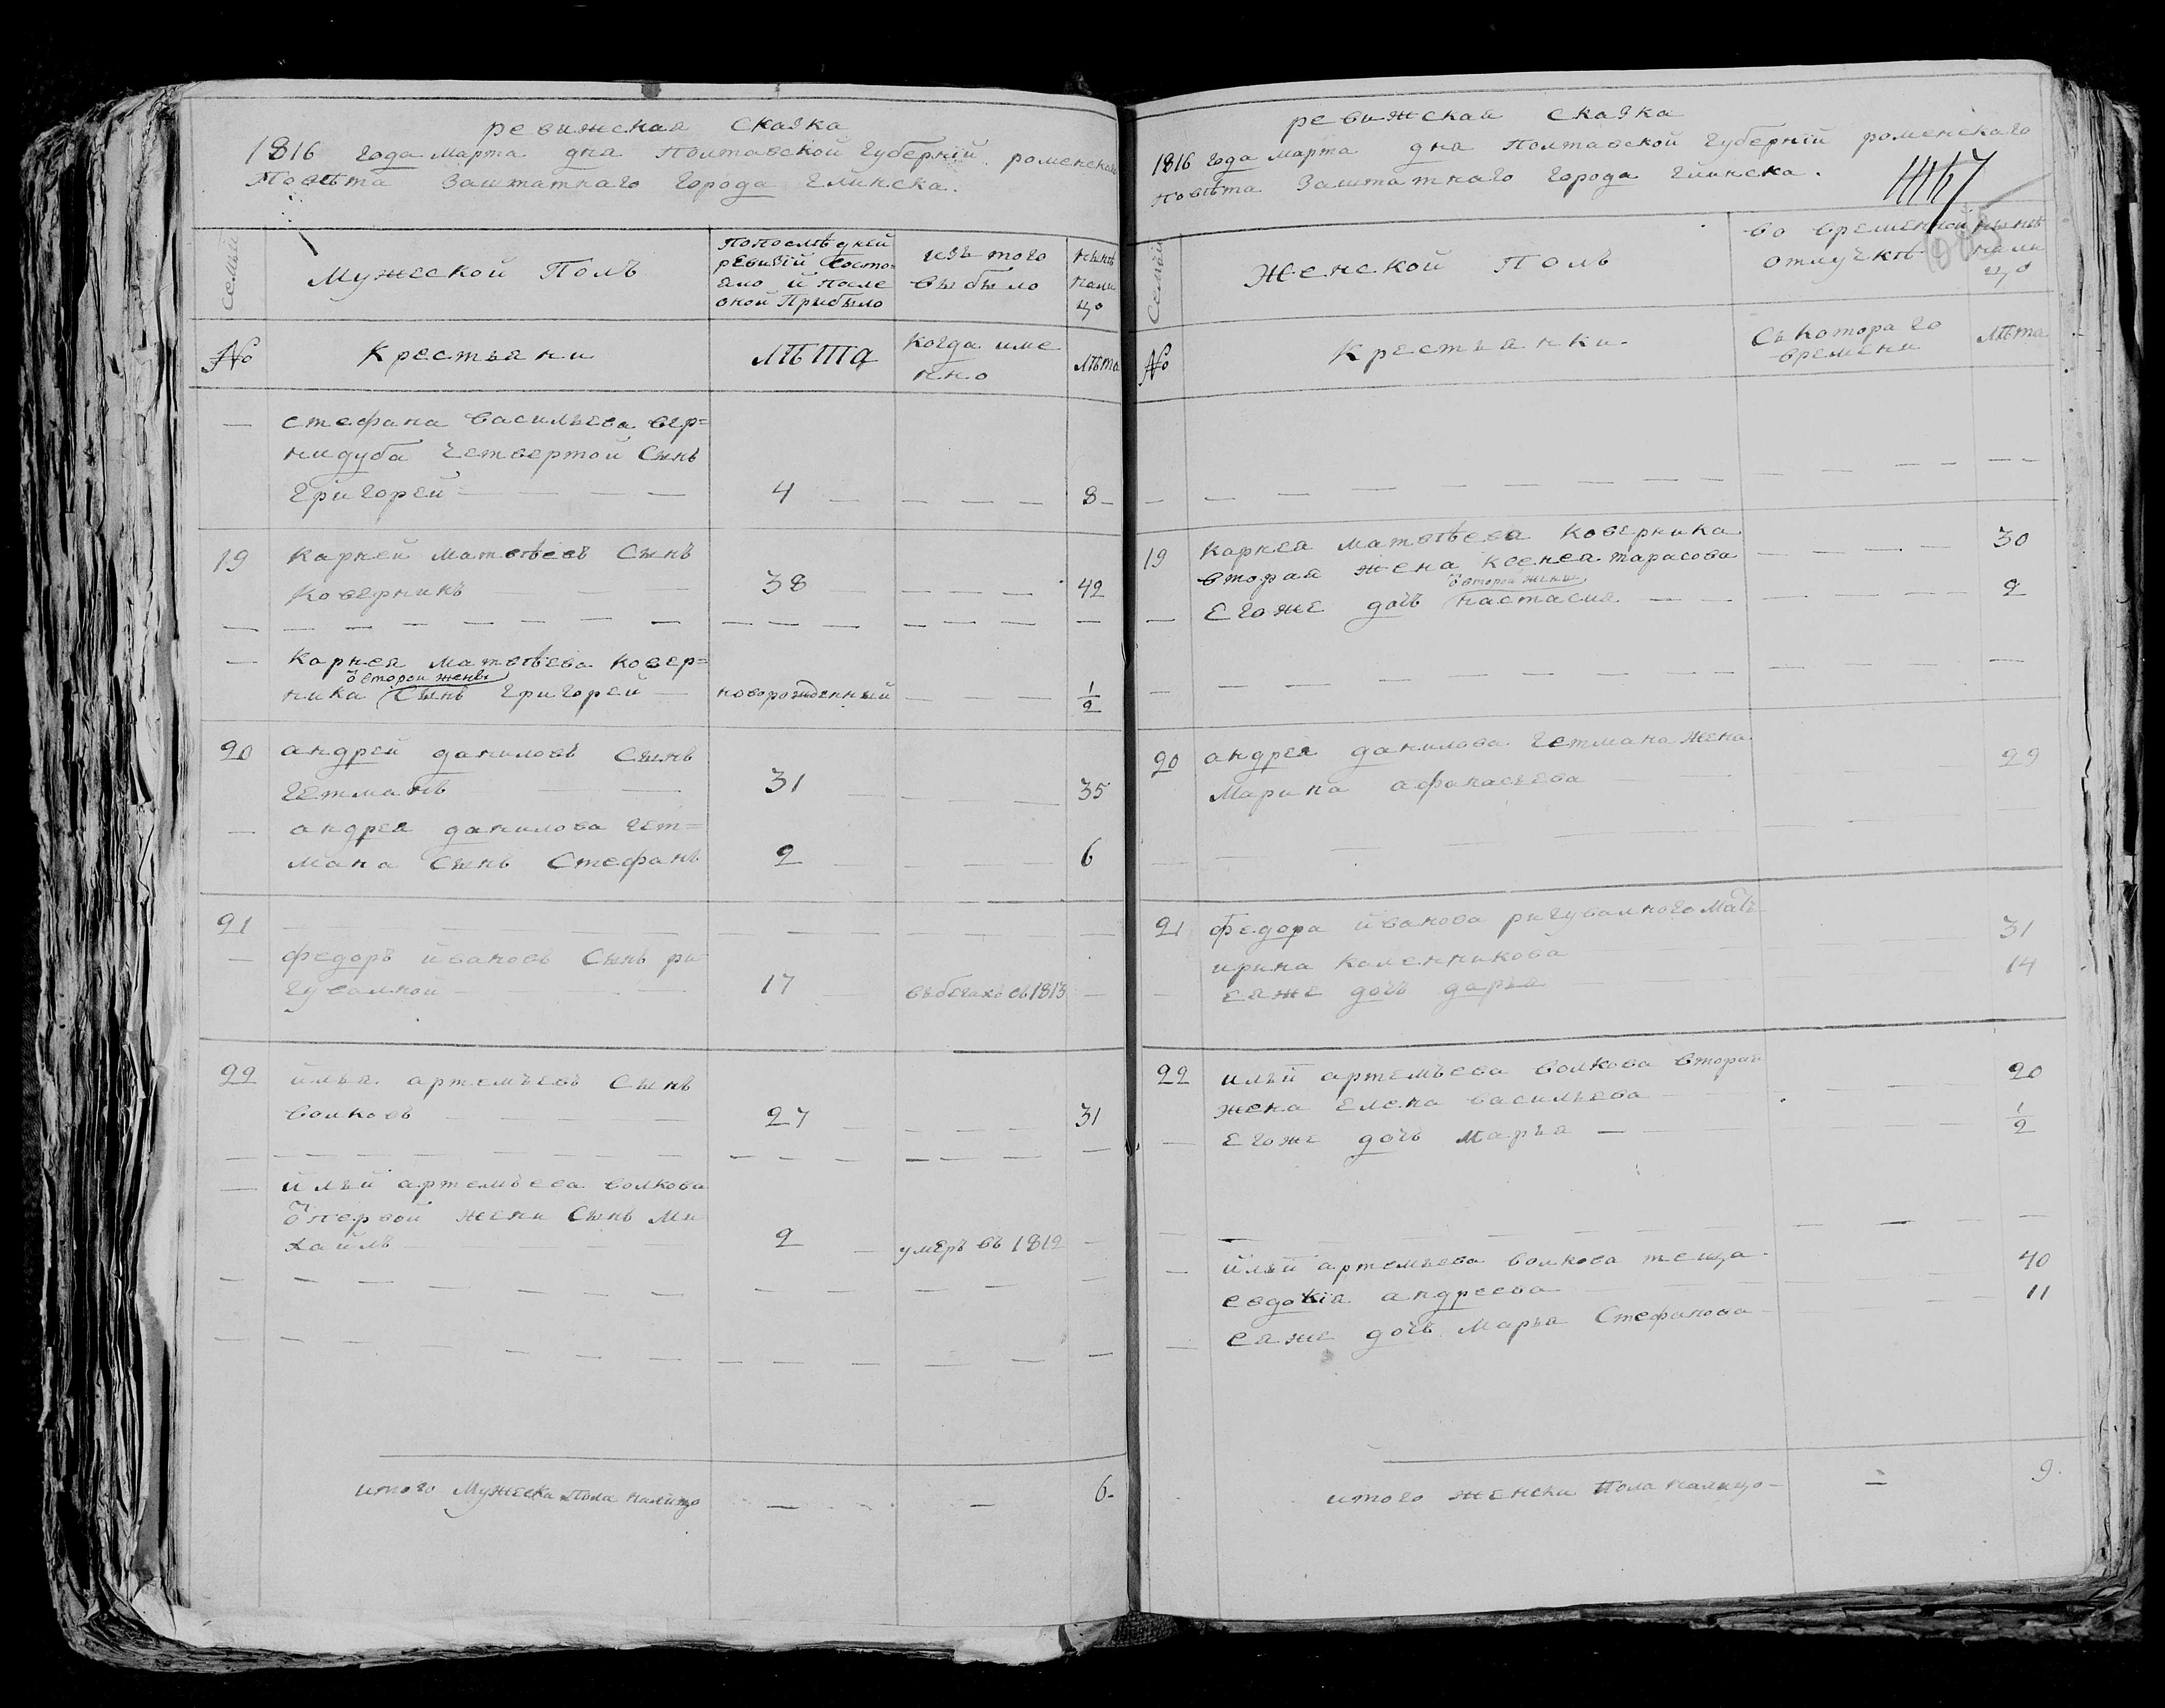 ревижская сказка
1816 года марта дня Полтавской Губернїй роменскаго
Повѣта Заштатнаго города Глинска.
Семьи
Мужеской Полъ
Попослѣдней
ревизїй Состо-
яло й после
оной Прибыло
изъ того
выбыло
нынѣ
нали
цо
№
Крестьяни
лѣта
Когда име
нно
лѣта
— стефана васильева вер=
нидуба четвертой Сынъ
григорей — 4 — 8
19 карней матвѣевъ Сынъ
коверникъ 38 — 42
— карнея матвѣева ковер=
ѿ второи жены
ника Сынъ григорей — новорожденный — 1/2
20 андрей даниловъ Сынъ
гетманъ 31 — 35
— андрея данилова гет=
мана Сынъ Стефанъ 2 — 6
21
— федоръ йвановъ Сынъ ри
гувалной 17 — въбегахъ съ 1813 —
22 йлья артемьевъ Сынъ
волковъ 27 — 31
— йлъй артемъева волкова
ѿ первой жени Сынъ Ми
хайлъ 2 — умеръ въ 1812 —
итого Мужеска Пола налицо — — 6.
ревижская сказка
1816 года марта дня Полтавской Губернїй роменскаго
повѣта Заштатнаго города глинска.
Семьи
Женской Полъ
во временной
отлучкѣ
нынѣ
нали
цо
№
Крестъянки.
Съ котораго
времени
лѣта
19 карнея матвѣева коверника
вторая жена ксенея тарасова — 30
ѿ второй жены
Егоже дочъ настасия — 2
20 андрея данилова гетмана жена
Марина афанасьева 29
21 федора йванова ригувалного мать
ирина каленникова 31
— еяже дочъ дарья 14
22 илъй артемъева волкова вторая
жена Елена васильева 20
— Егоже дочъ марья — 1/2
— йлъй артемъева волкова теща
евдокїя андреева 40
— еяже дочъ Марья Стефанова 11
итого женска пола налицо — — 9.